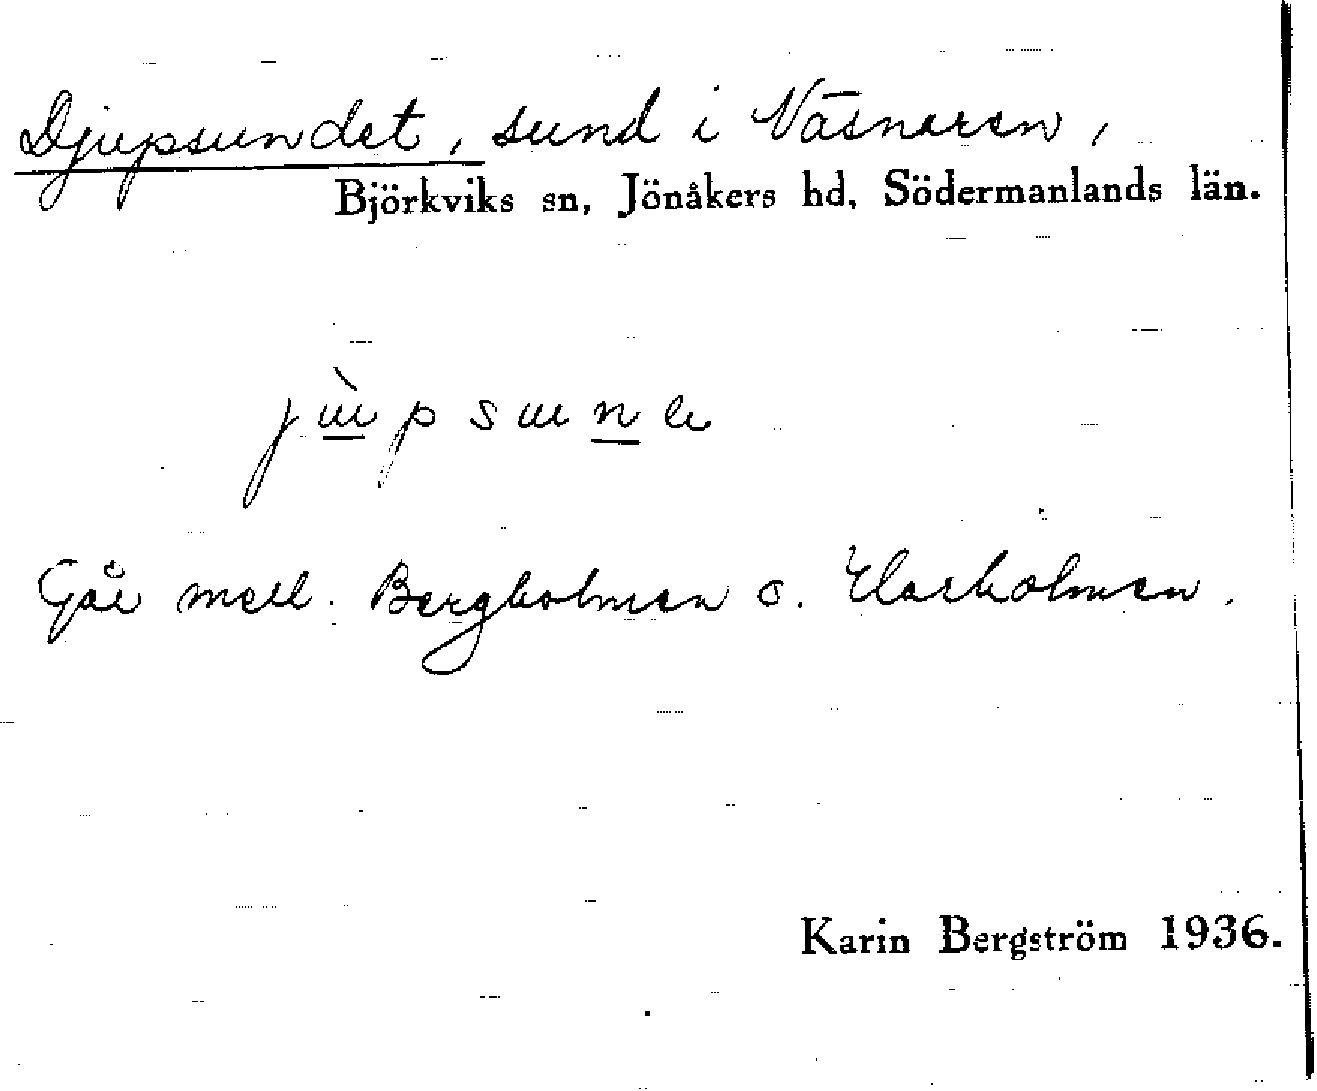 Djupsundet, sund i Näsnaren,
Björkviks sn, Jönåkers hd, Södermanlands län.
Går mell. Bergholmen o.
Karin Bergström 1936.